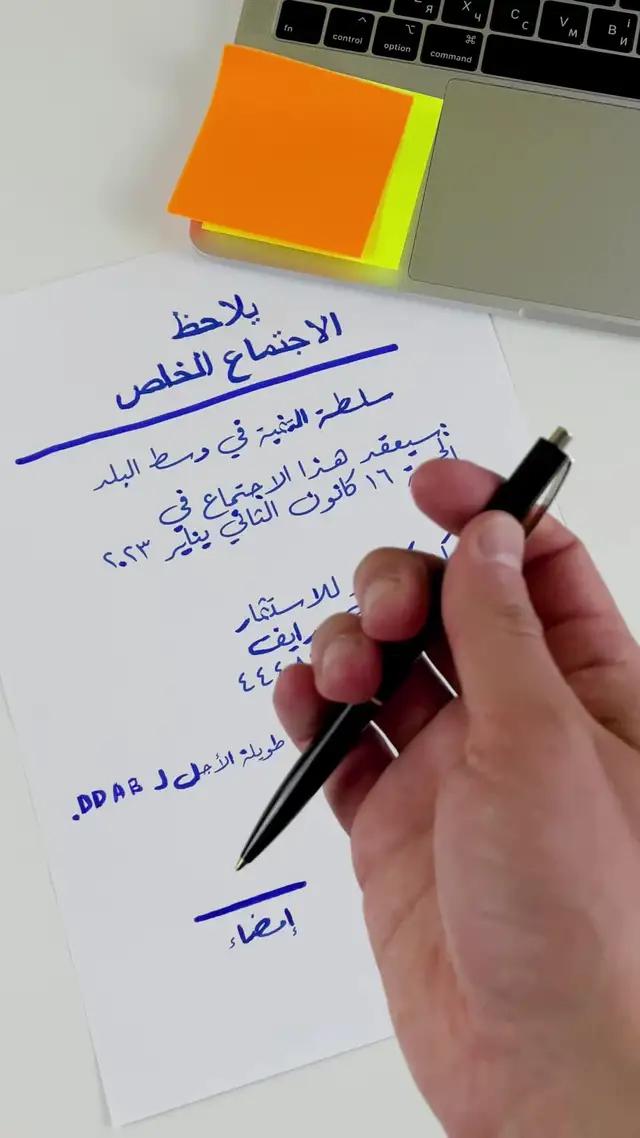 fn
control
option
command
⌘
Я
X Ч
C С
V М
B И
يلاحظ
الاجتماع الخلص
سلطة التنمية في وسط البلد
سيعقد هذا الاجتماع في
١٦ كانون الثاني يناير ٢٠٢٣
للاستثمار
رايف
٤٤٤٨
طويلة الأجل ل DDAB.
إمضاء